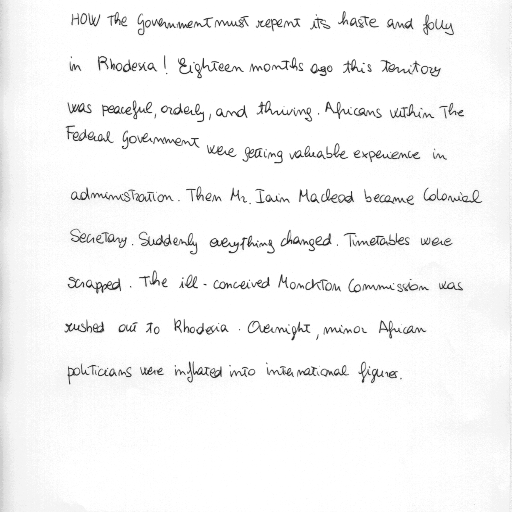 HOW The Government must repent its haste and folly
in Rhodesia! Eighteen months ago this Territory
was peaceful, orderly, and thriving. Africans within The
Federal Government were getting valuable experience in
administration. Then Mr. Iain Macleod became Colonial
Secretary. Suddenly everything changed. Timetables were
scrapped. The ill-conceived Monckton Commission was
rushed out to Rhodesia. Overnight, minor African
politicians were inflated into international figures.